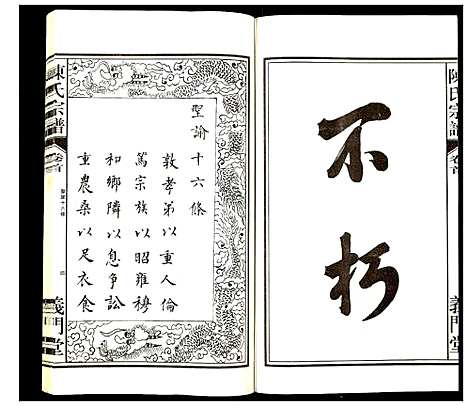 陳氏宗譜
卷首
義門堂
不朽
聖諭十六條
敦孝弟以重人倫
篤宗族以昭雍穆
和鄉隣以息爭訟
重農桑以足衣食
陳氏宗譜
卷首
聖諭十六條
義門堂